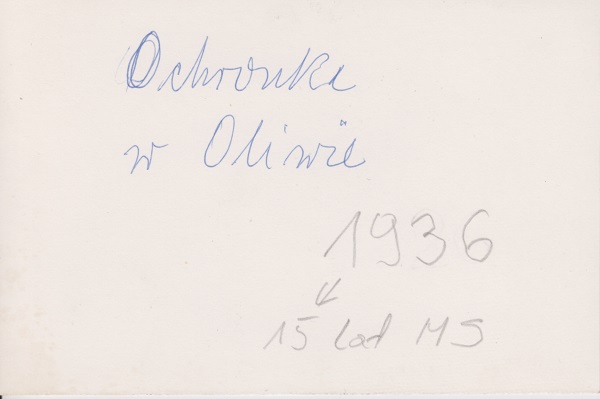 Ochronka
w Oliwie
1936
15 lat MS